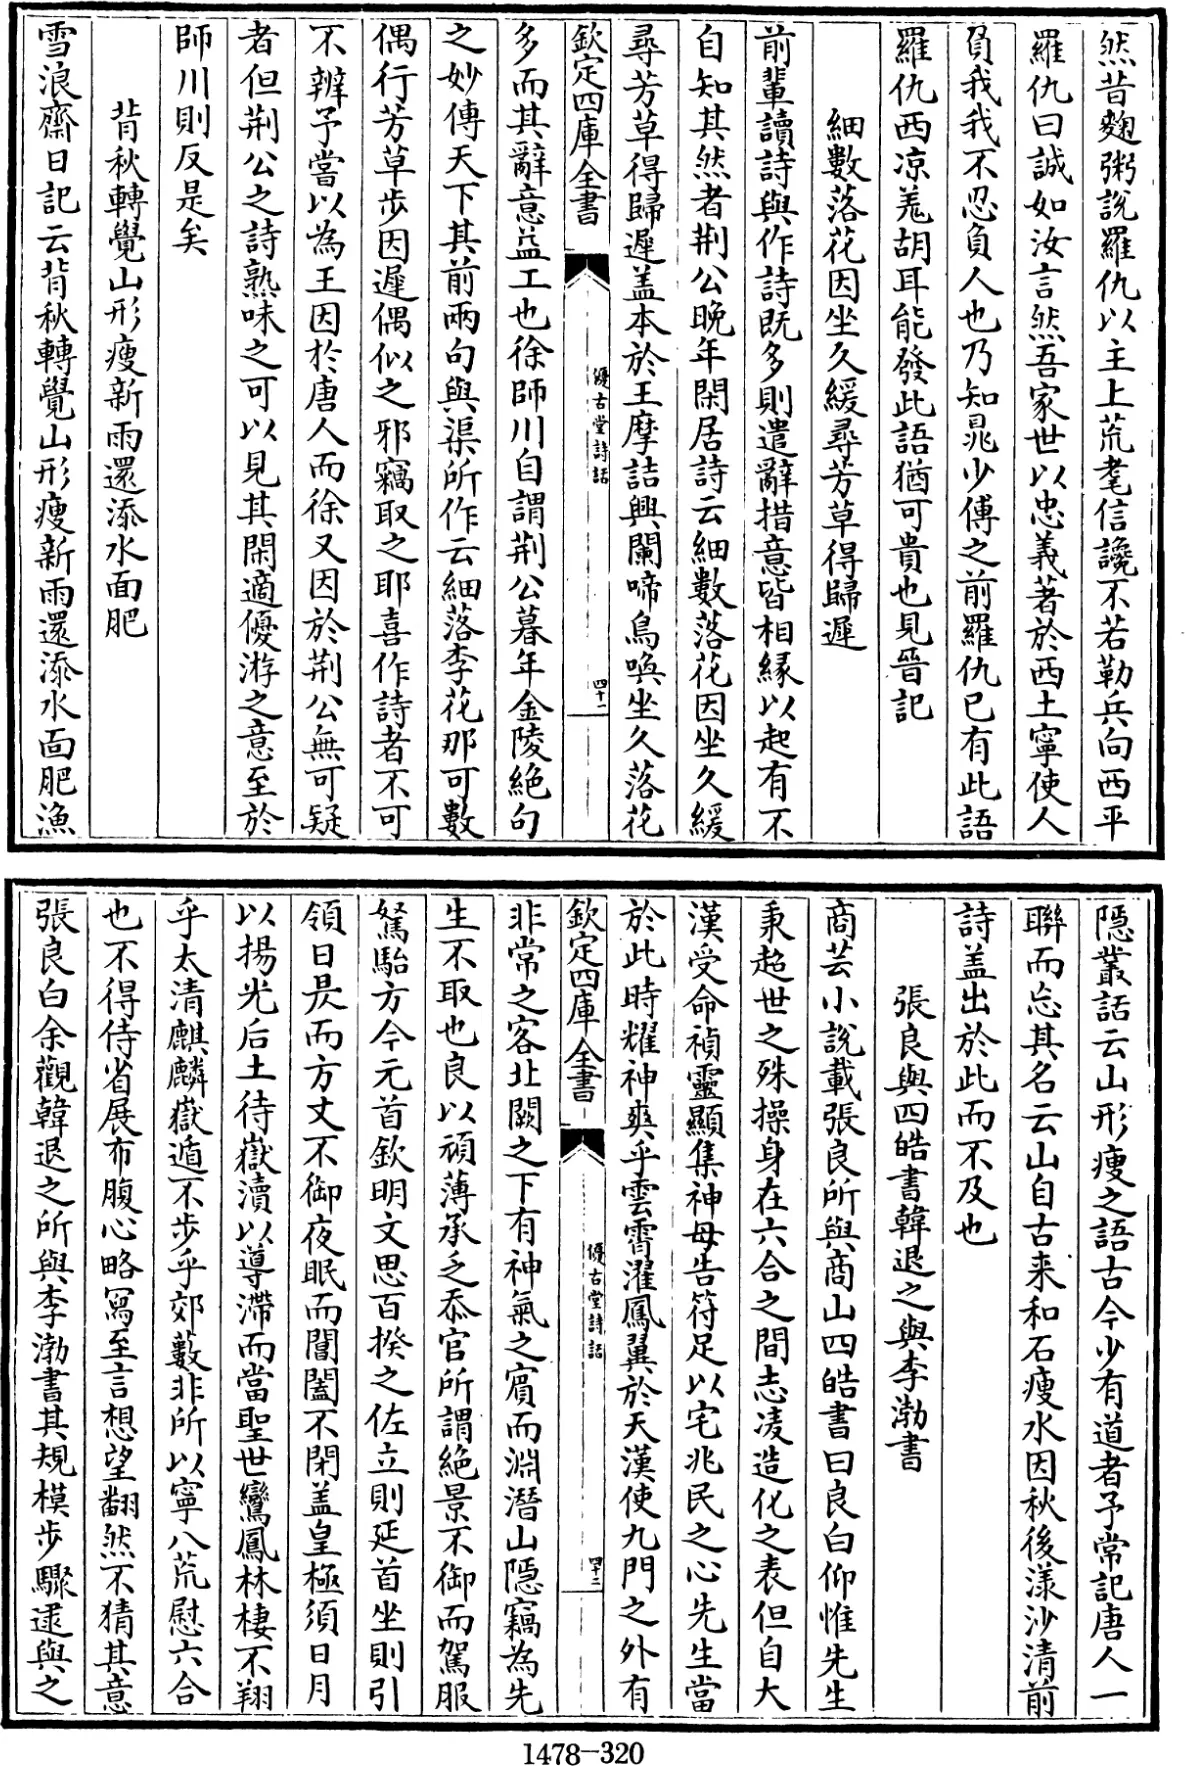 然昔麴粥說羅仇以主上荒耄信讒不若勒兵向西平
羅仇曰誠如汝言然吾家世以忠義著於西土寧使人
負我我不忍負人也乃知晁少傅之前羅仇已有此語
羅仇西凉羗胡耳能發此語猶可貴也見晉記
細數落花因坐久緩尋芳草得歸遲
前輩讀詩與作詩既多則遣辭措意皆相緣以起有不
自知其然者荆公晚年閑居詩云細數落花因坐久緩
尋芳草得歸遲盖本於王摩詰興闌啼鳥喚坐久落花
欽定四庫全書
優古堂詩話
四十一
多而其辭意益工也徐師川自謂荆公暮年金陵絶句
之妙傳天下其前兩句與渠所作云細落李花那可數
偶行芳草步因遲偶似之邪竊取之耶喜作詩者不可
不辨予嘗以為王因於唐人而徐又因於荆公無可疑
者但荆公之詩熟味之可以見其閑適優游之意至於
師川則反是矣
背秋轉覺山形瘦新雨還添水面肥
雪浪齋日記云背秋轉覺山形瘦新雨還添水面肥漁
隱叢話云山形瘦之語古今少有道者予常記唐人一
聯而忘其名云山自古来和石瘦水因秋後漾沙清前
詩盖出於此而不及也
張良與四皓書韓退之與李渤書
商芸小說載張良所與商山四皓書曰良白仰惟先生
秉超世之殊操身在六合之間志凌造化之表但自大
漢受命禎靈顯集神母告符足以宅兆民之心先生當
於此時耀神爽乎雲霄濯鳳翼於天漢使九門之外有
欽定四庫全書
優古堂詩話
四十二
非常之客北闕之下有神氣之賓而淵潛山隱竊為先
生不取也良以頑薄承乏忝官所謂絶景不御而駕服
駑駘方今元首欽明文思百揆之佐立則延首坐則引
領日昃而方丈不御夜眠而閶闔不閉盖皇極須日月
以揚光后土待嶽瀆以導滯而當聖世鸞鳳林棲不翔
乎太清麒麟嶽遁不步乎郊藪非所以寧八荒慰六合
也不得侍省展布腹心略寫至言想望翻然不猜其意
張良白余觀韓退之所與李渤書其規模步驟逮與之
1478-320